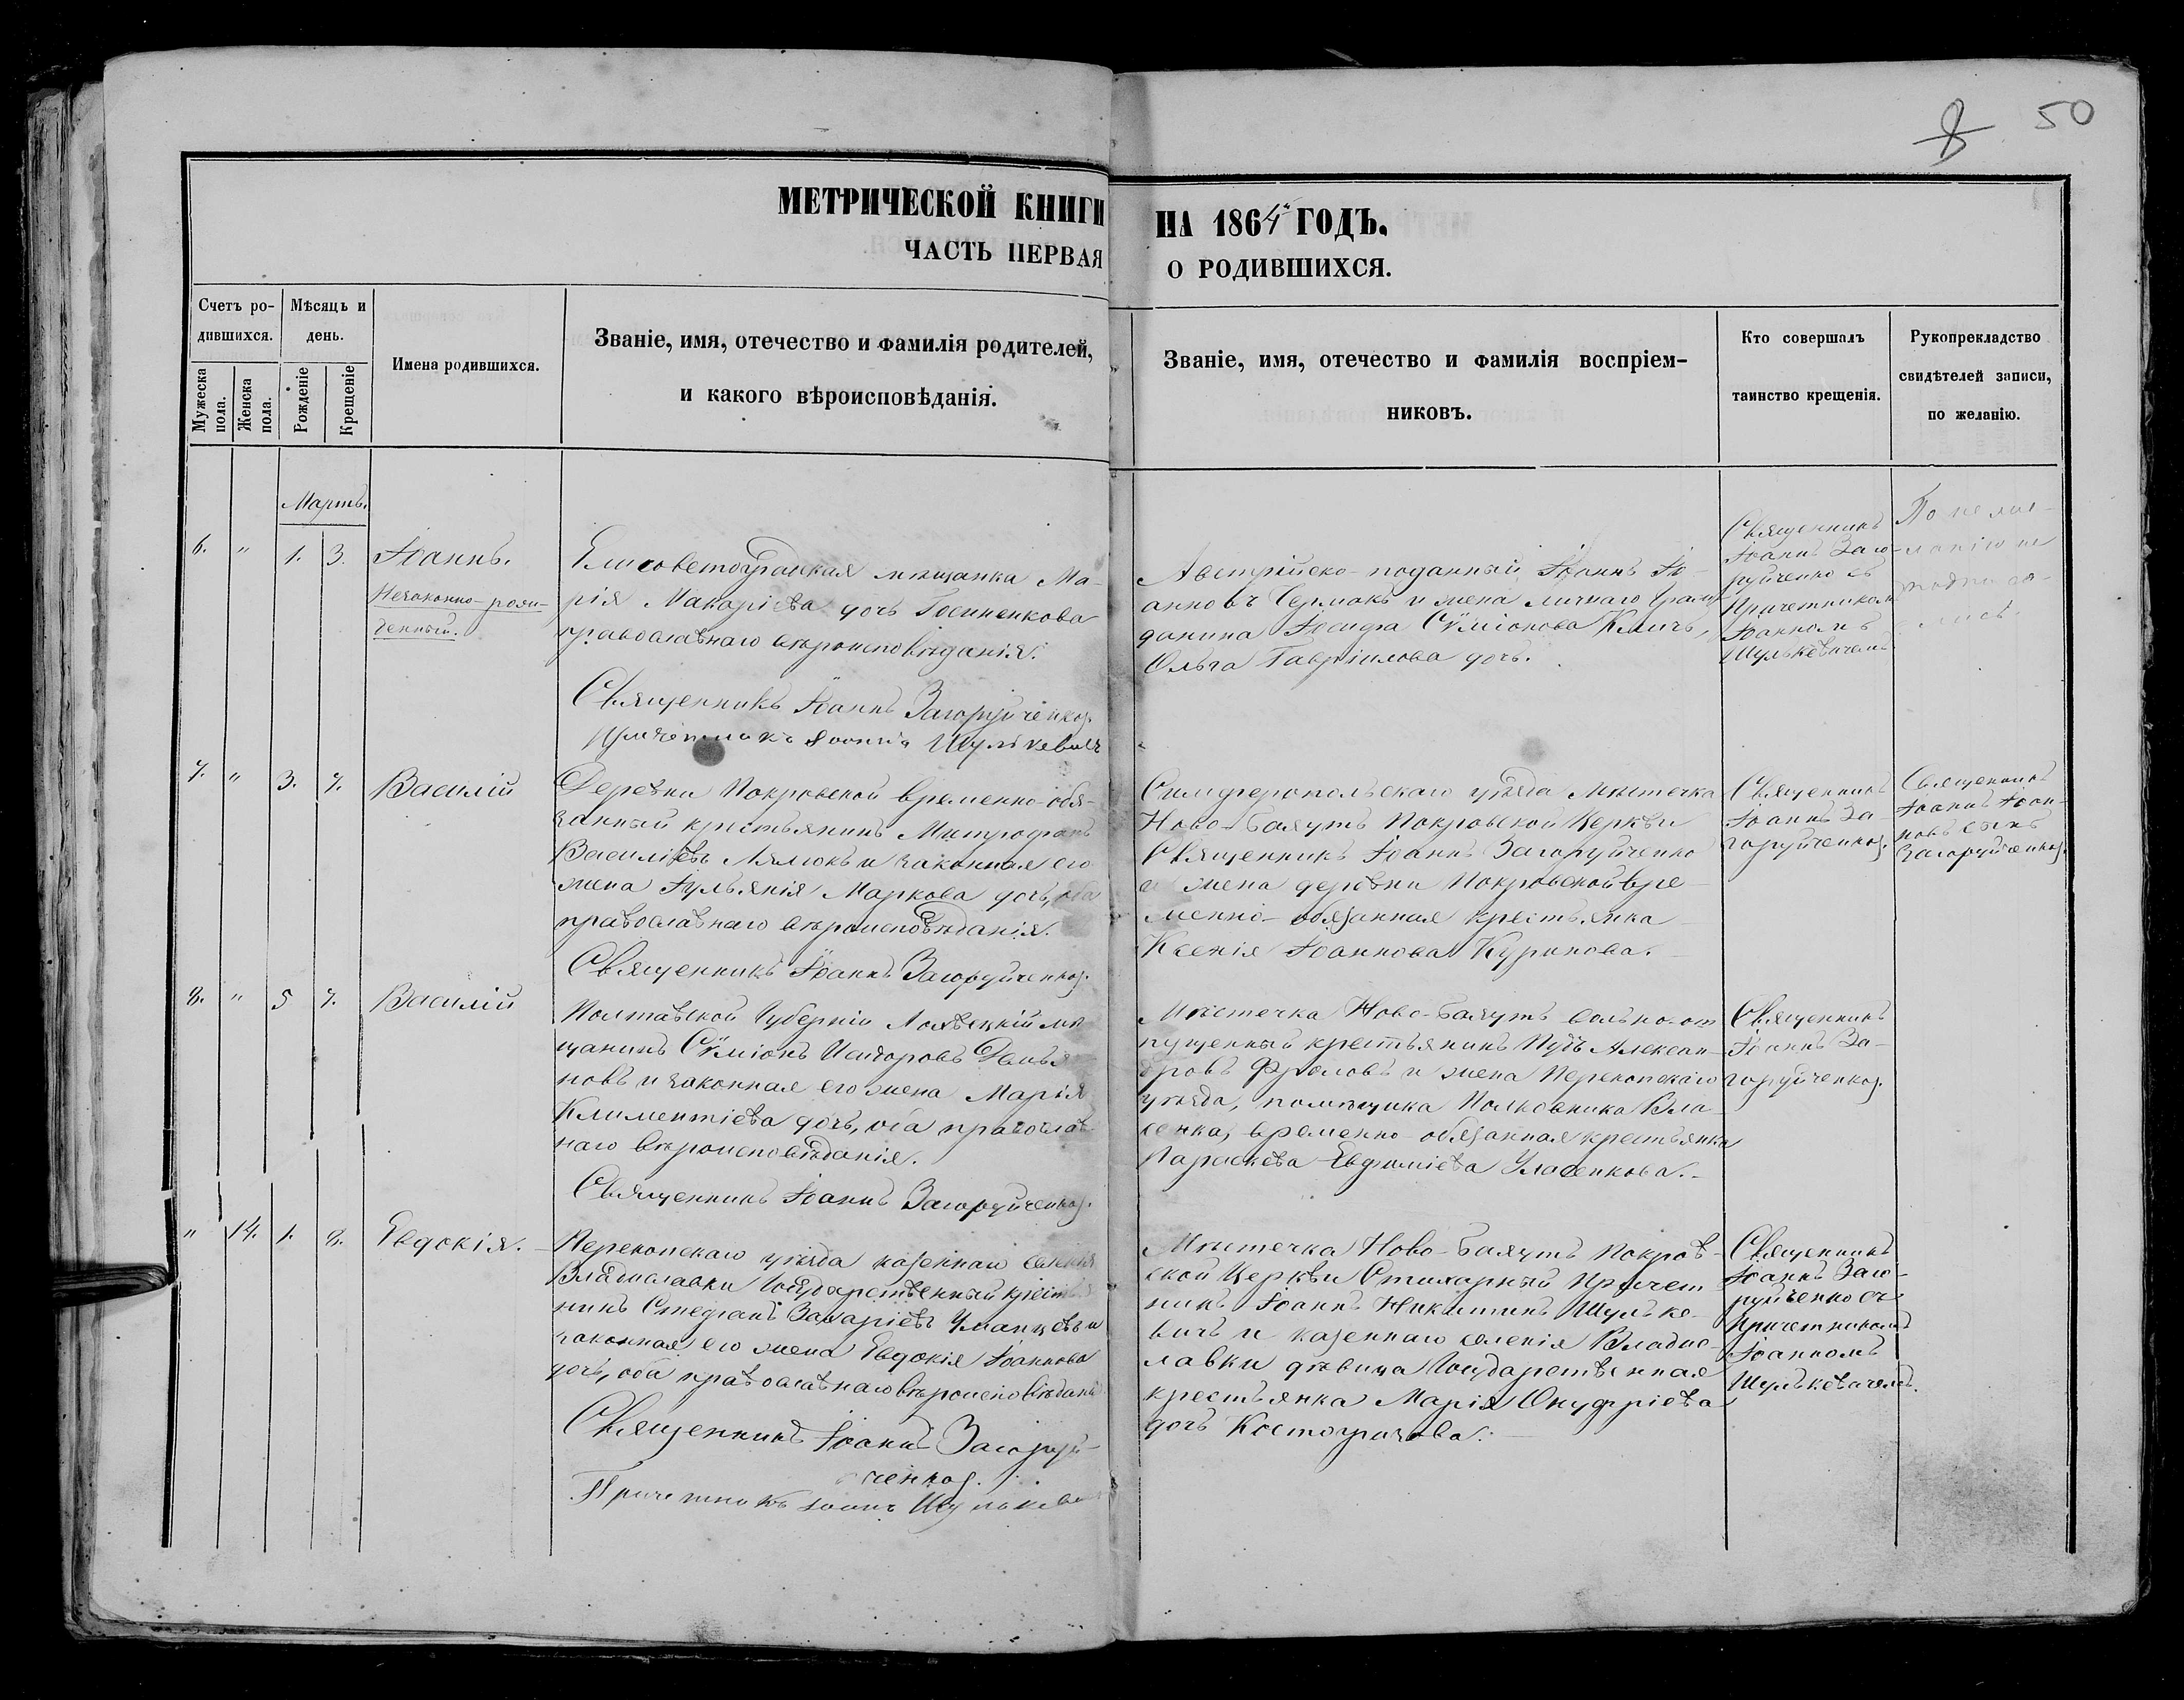 8 50
МЕТРИЧЕСКОЙ КНИГИ НА 1864 ГОДЪ.
ЧАСТЬ ПЕРВАЯ О РОДИВШИХСЯ.
Счетъ ро-
дившихся.
Мужеска пола.
Женска пола.
Мѣсяцъ и
день.
Рожденіе
Крещеніе
Имена родившихся.
Званіе, имя, отечество и фамилія родителей,
и какого вѣроисповѣданія.
Званіе, имя, отечество и фамилія воспріем-
никовъ.
Кто совершалъ
таинство крещенія.
Рукоприкладство
свидѣтелей записи,
по желанію.
Мартъ.
6. " 1. 3. Іоаннъ.
Незаконно-рож-
денный.
Елисаветоградская мѣщанка Ма-
рія Макаріева дочь
православнаго вѣроисповѣданія.
Священникъ Іоаннъ Загоруйченко.
Причетникъ Іоаннъ Шулькевичъ
Австрійско-поданный Іоаннъ Іо-
анновъ Чермакъ и жена личнаго граж-
данина Іосифа Сѵміонова
Ольга Гавріилова дочь.
Священникъ
Іоаннъ Заго-
руйченко съ
Причетникомъ
Іоанномъ
Шулькевичемъ
7. " 3. 7. Василій
Деревни Покровской временно-обя-
занный крестьянинъ Митрофанъ
Василіевъ Лялюкъ и законная его
жена Іульянія Маркова дочь, оба
православнаго вѣроисповѣданія.
Священникъ Іоаннъ Загоруйченко.
Симферопольскаго уѣзда Мѣстечка
Ново-Баяутъ Покровской Церкви
Священникъ Іоаннъ Загоруйченко
и жена деревни Покровской вре-
менно-обязанная крестьянка
Ксенія Іоаннова Курипова.
Священникъ
Іоаннъ За-
горуйченко.
Священникъ
Іоаннъ Іоан-
новъ сынъ
Загоруйченко.
8. " 5 7. Василій
Полтавской Губерніи мѣ-
щанинъ Сѵміонъ Исидоровъ Демья-
новъ и законная его жена Марія
Климентіева дочь, оба православ-
наго вѣроисповѣданія.
Священникъ Іоаннъ Загоруйченко.
Мѣстечка Ново-Баяутъ вольно-от
пущенный крестьянинъ Алексан-
дровъ Фроловъ и жена Перекопскаго
уѣзда, помѣщика Полковника Вла-
сенка, временно-обязанная крестьянка
Параскева Евфиміева Уласенкова.
Священникъ
Іоаннъ За-
горуйченко.
" 14. 1. 8. Евдокія.
Перекопскаго уѣзда казеннаго селенія
Владиславки Государственный крестья-
нинъ Стефанъ Захаріевъ Уманцевъ и
законная его жена Евдокія Іоаннова
дочь, оба православнаго вѣроисповѣданія
Священникъ Іоаннъ Загоруй-
ченко.
Причетникъ Іоаннъ Шулькевичъ
Мѣстечка Ново-Баяутъ Покров-
ской Церкви Стихарный Причет
никъ Іоаннъ Никитинъ Шульке-
вичъ и казеннаго селенія Владис-
лавки дѣвица Государственная
крестьянка Марія Онуфріева
дочь
Священникъ
Іоаннъ Заго-
руйченко съ
Причетникомъ
Іоанномъ
Шулькевичемъ.